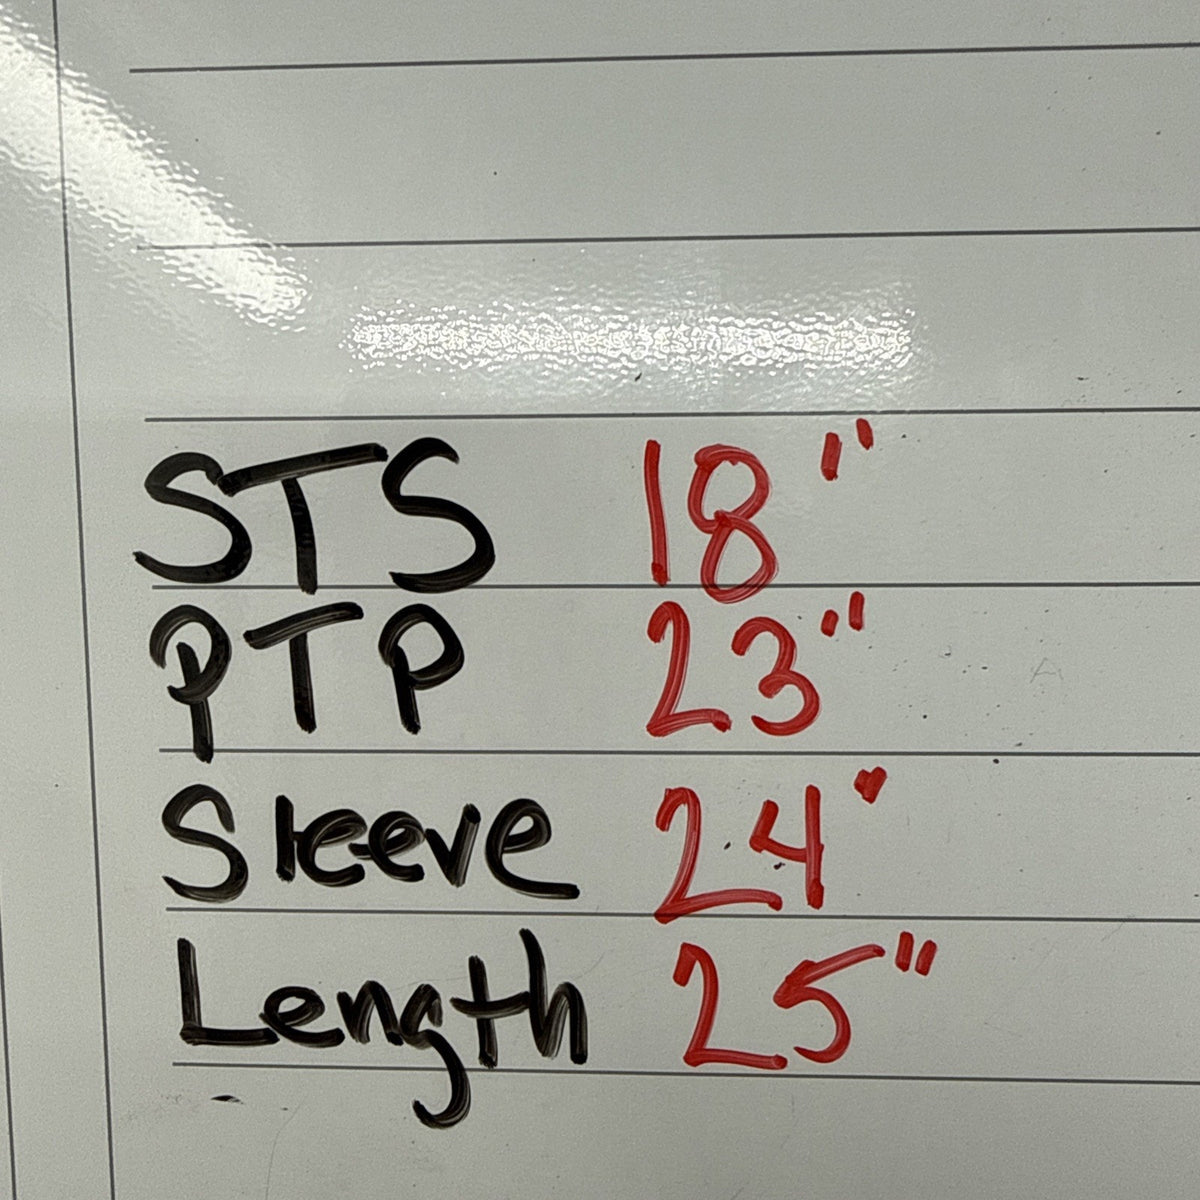 STS 18"
PTP 23"
Sleeve 24"
Length 25"